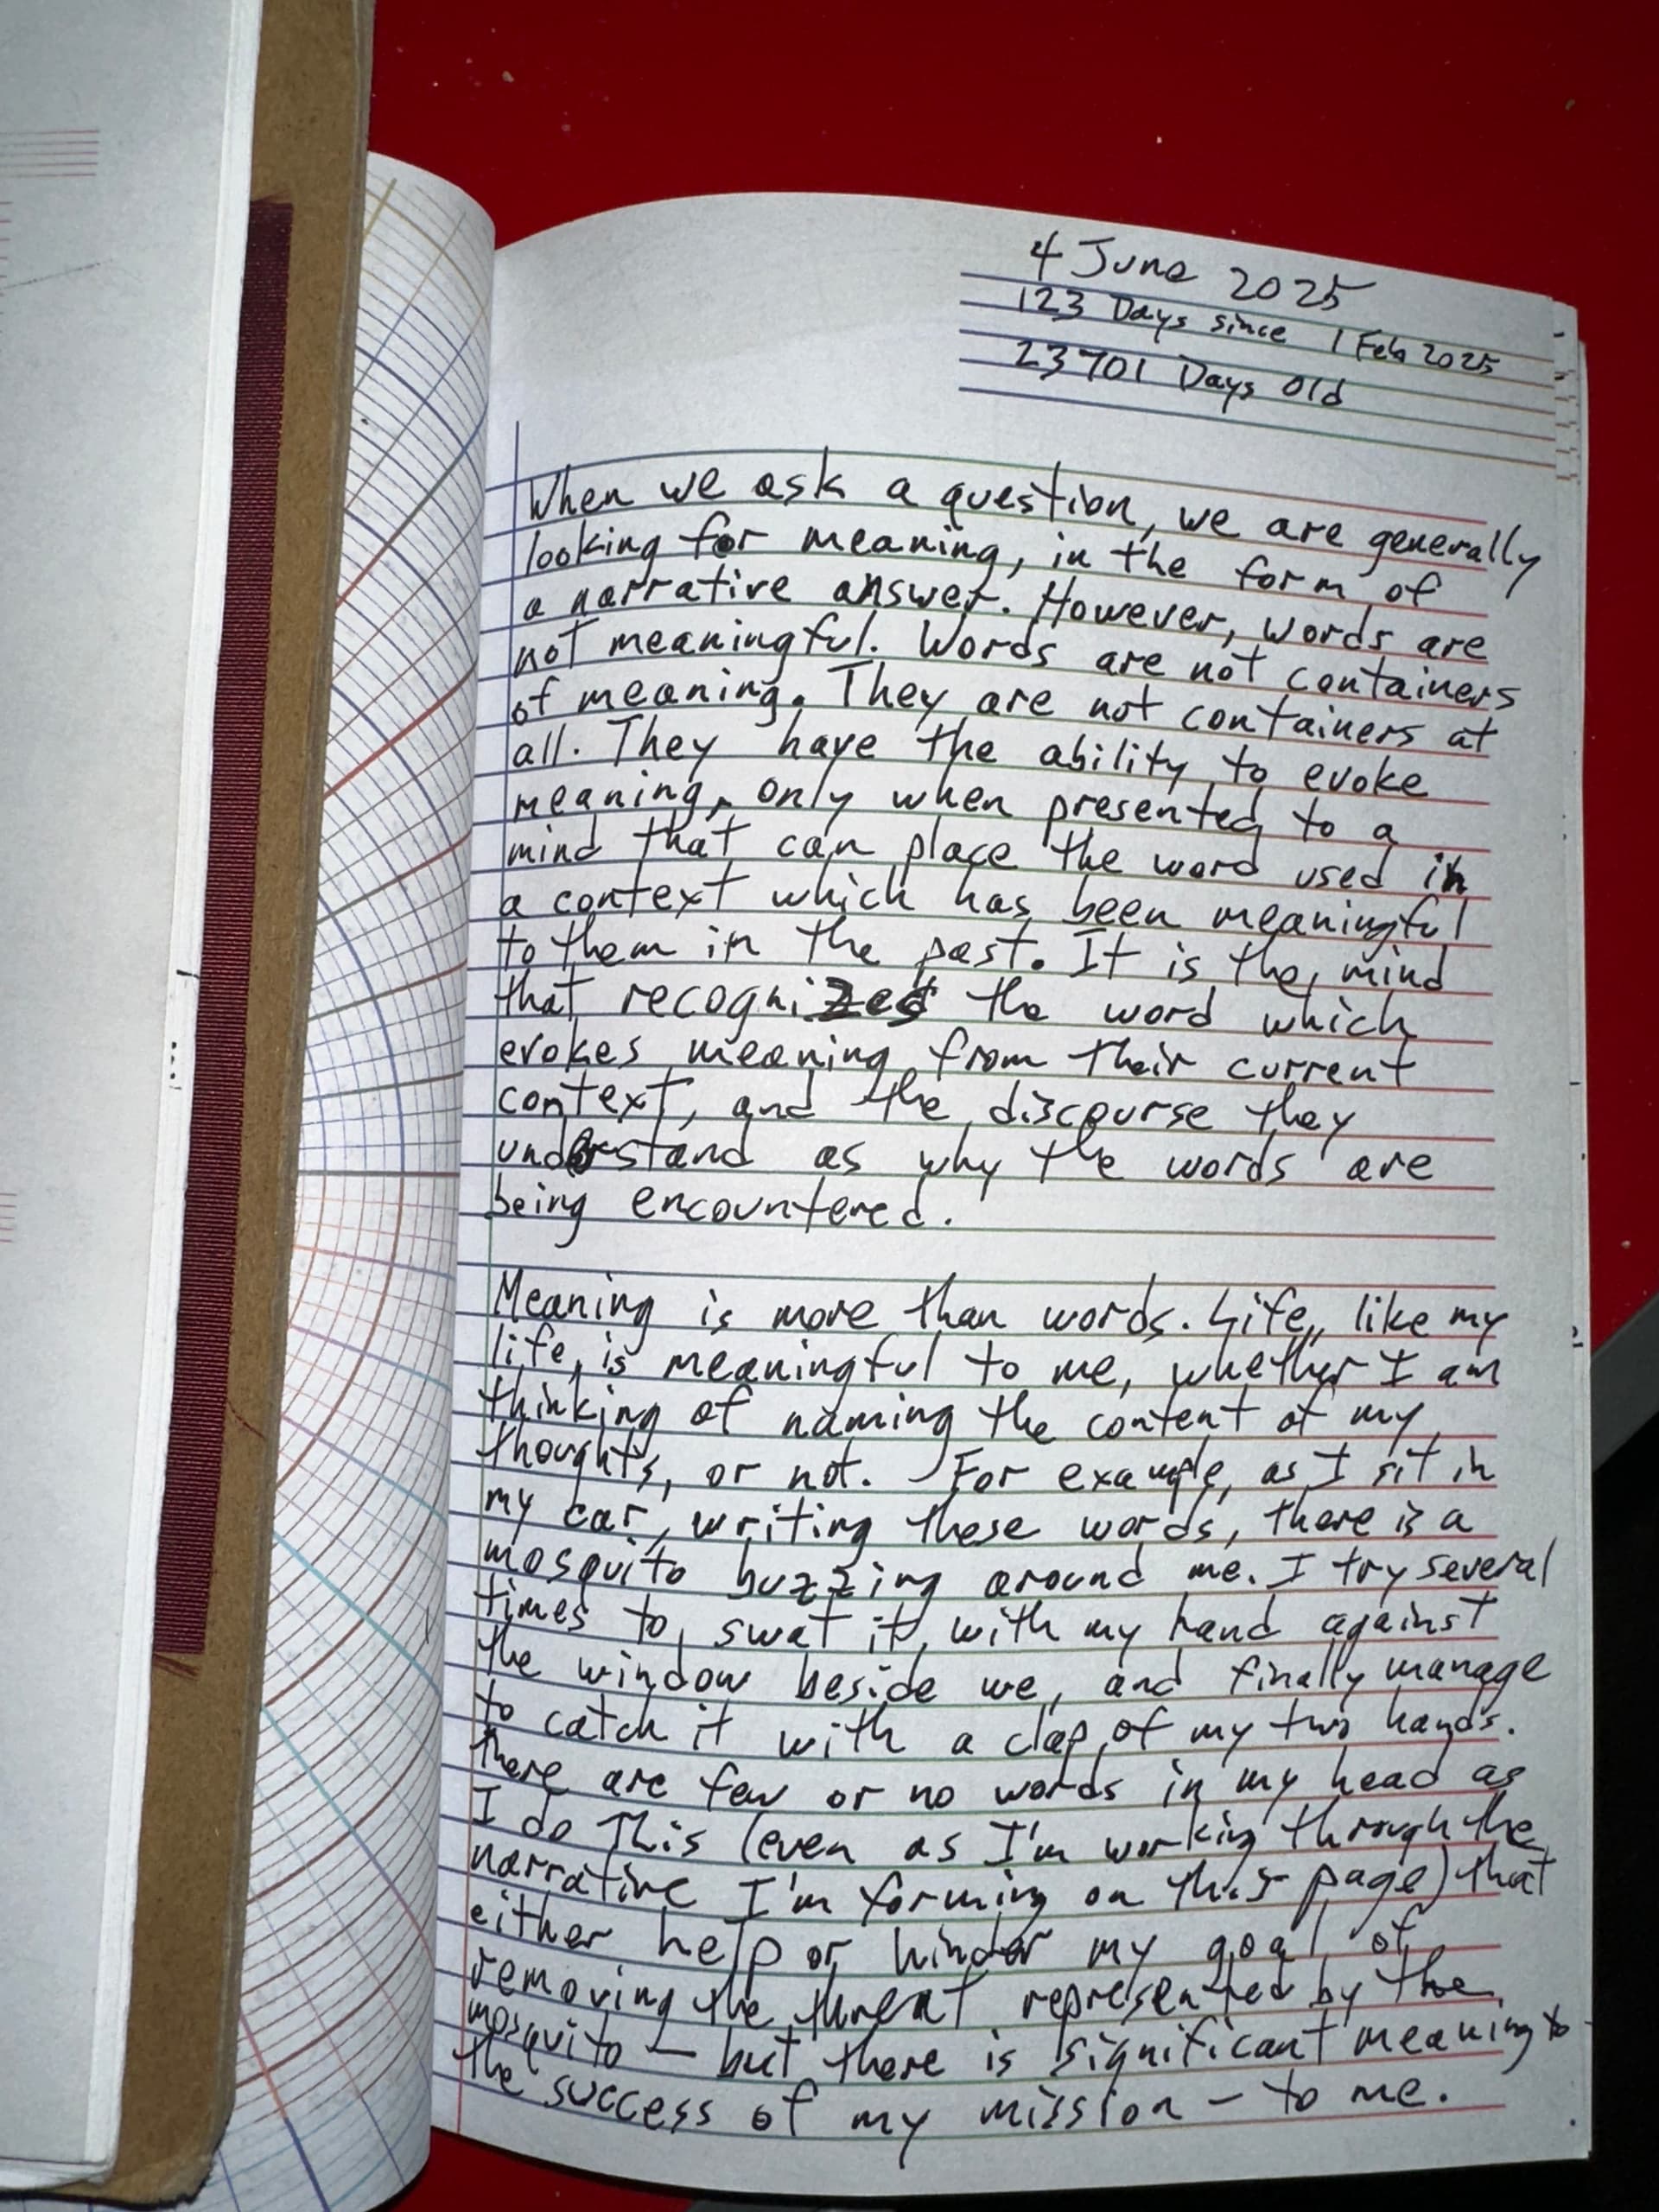 4 June 2025
123 Days since 1 Feb 2025
23701 Days Old
When we ask a question, we are generally
looking for meaning, in the form of
a narrative answer. However, words are
not meaningful. Words are not containers
of meaning. They are not containers at
all. They have the ability to evoke
meaning, only when presented to a
mind that can place the word used in
a context which has been meaningful
to them in the past. It is the mind
that recognizes the word which
evokes meaning from their current
context, and the discourse they
understand as why the words are
being encountered.
Meaning is more than words. Life, like my
life, is meaningful to me, whether I am
thinking of naming the content of my
thoughts, or not. For example, as I sit in
my car, writing these words, there is a
mosquito buzzing around me. I try several
times to swat it, with my hand against
the window beside me, and finally manage
to catch it with a clap of my two hands.
There are few or no words in my head as
I do this (even as I'm working through the
narrative I'm forming on this page) that
either help or hinder my goal of
removing the threat represented by the
mosquito — but there is significant meaning to
the success of my mission – to me.